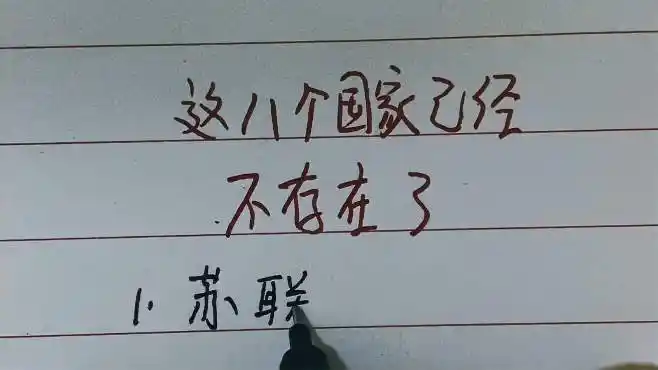 这八个国家已经
不存在了
1. 苏联